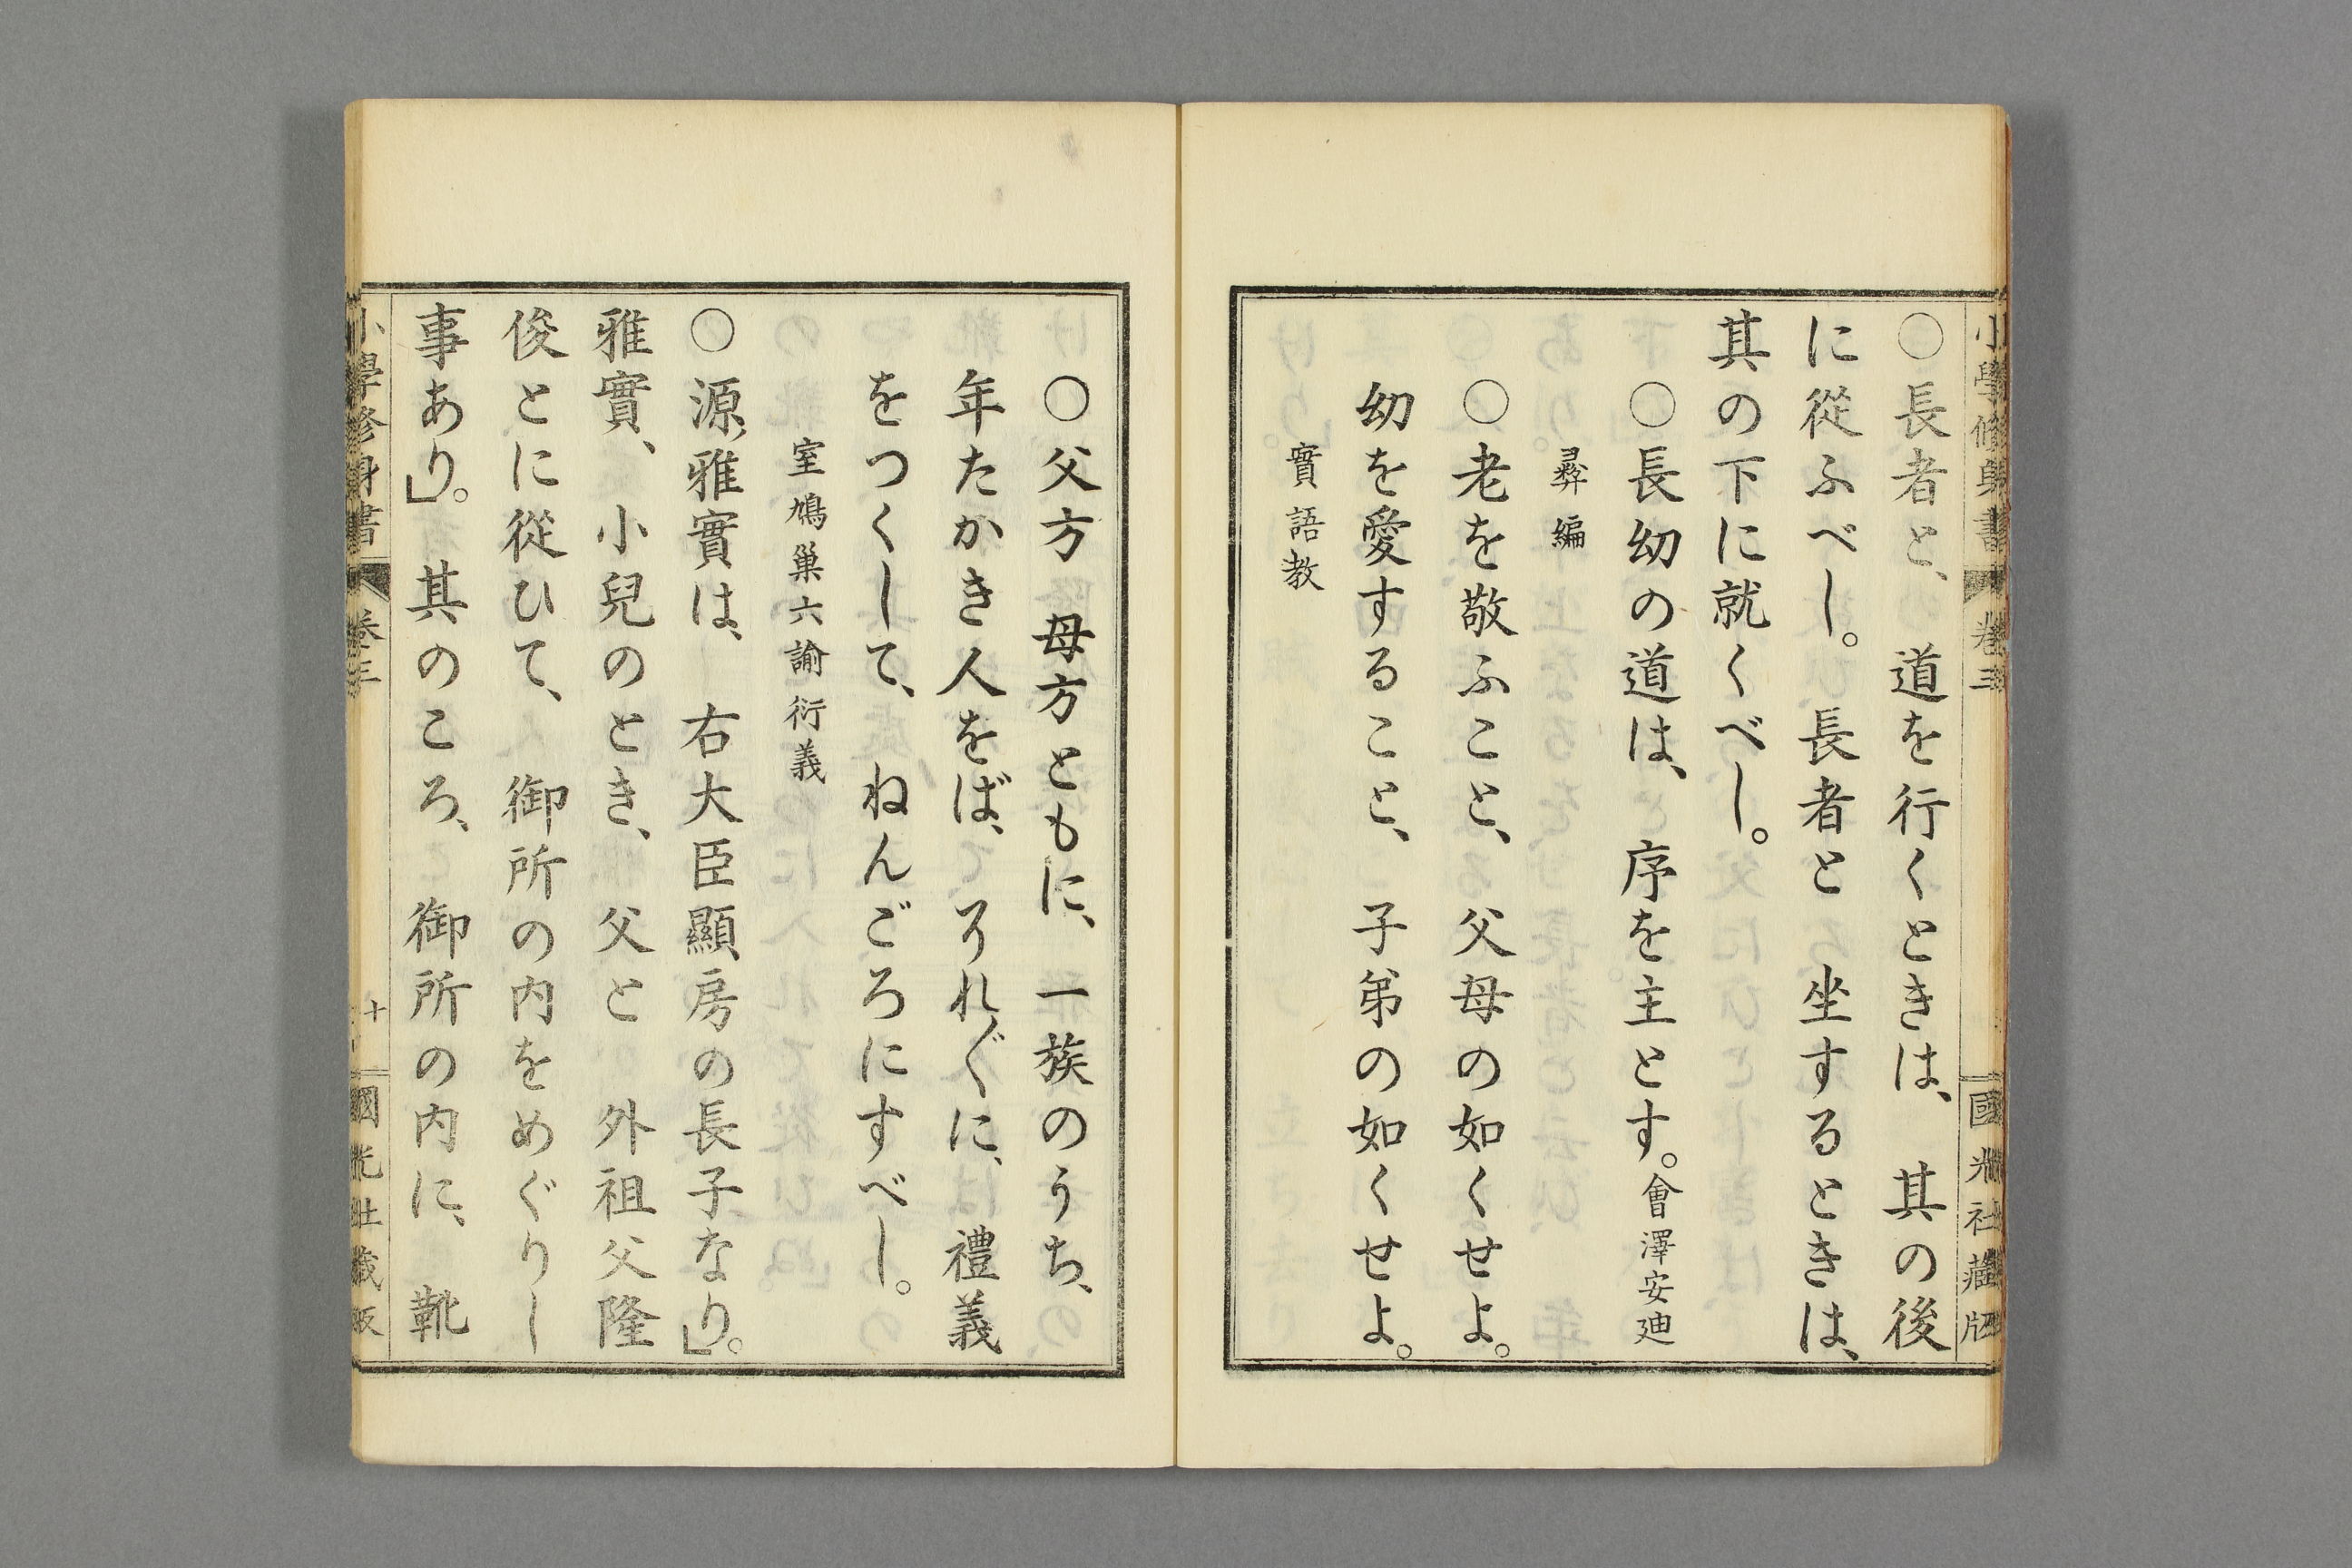 小學修身書 卷三 國光社藏版
○長者と、道を行くときは、其の後
に從ふべし。長者と坐するときは、
其の下に就くべし。
○長幼の道は、序を主とす。會澤安廸
彜編
○老を敬ふこと、父母の如くせよ。
幼を愛すること、子弟の如くせよ。
實語教
○父方母方ともに、一族のうち、
年たかき人をば、それ〲に、禮義
をつくして、ねんごろにすべし。
室鳩巢六諭衍義
○源雅實は、右大臣顯房の長子なり」。
雅實、小兒のとき、父と外祖父隆
俊とに從ひて、御所の内をめぐりし
事あり」。其のころ、御所の内に、靴
小學修身書 卷三 十 國光社藏版